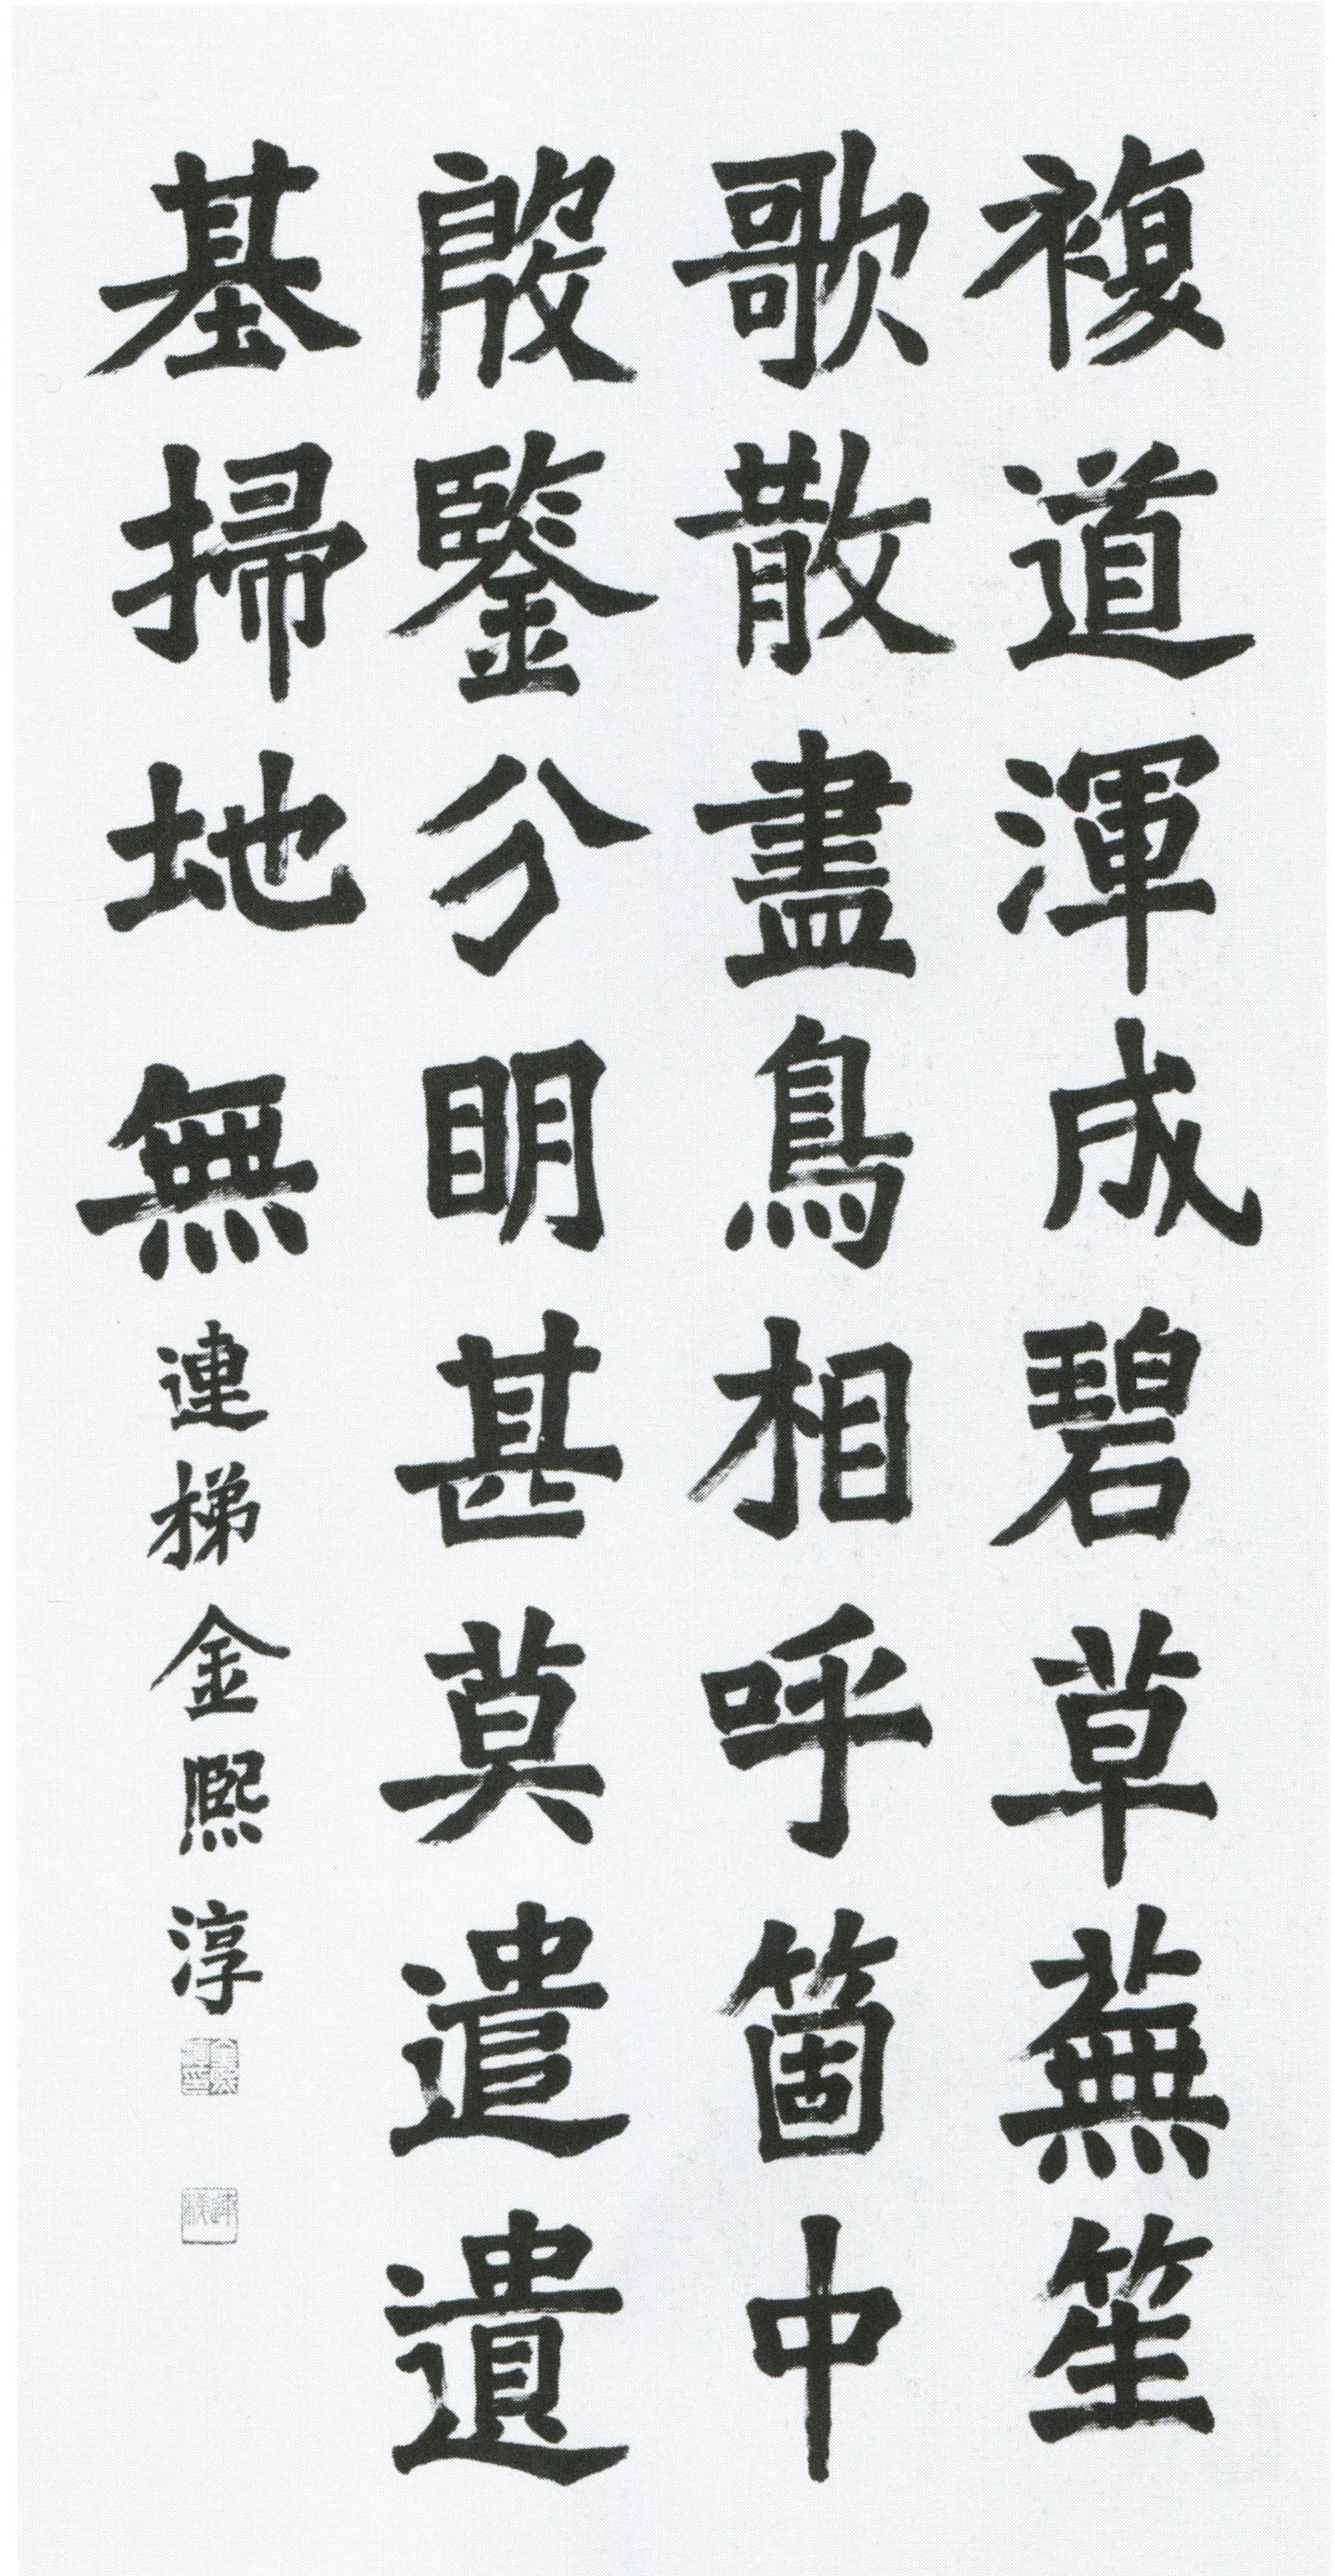 複道渾成碧草蕪笙
歌散盡鳥相呼箇中
殷鑒分明甚莫遣遺
基掃地無
連梯金熙淳